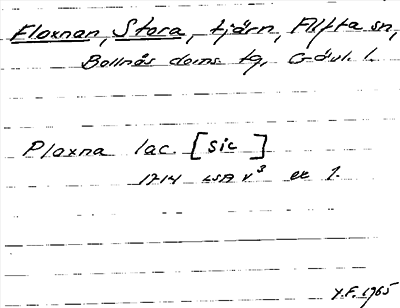 Floxnan, Stora, tjärn, Alfta sn,
Bollnäs doms. tg, Gävl. l.
Ploxna lac. [sic]
1714 LSA V³ ex 1.
Y.F. 1965